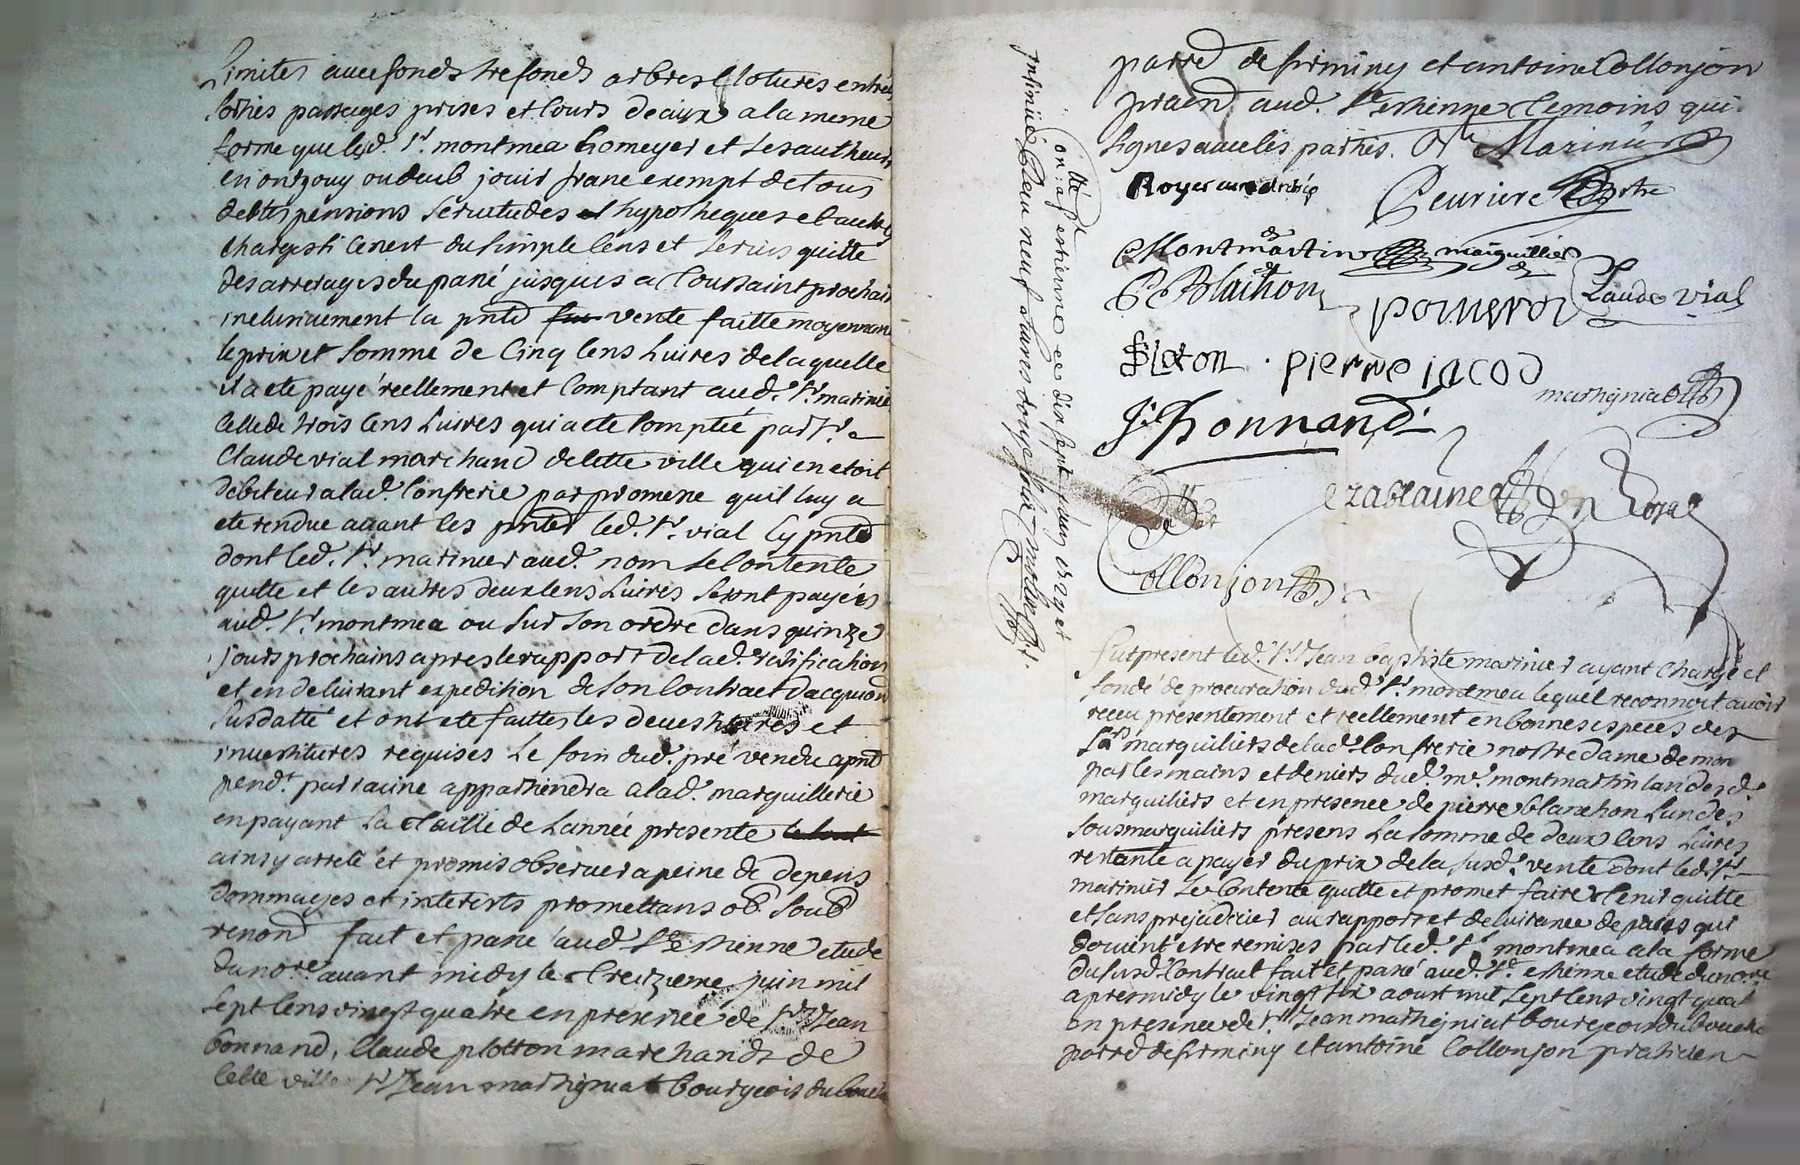 Limites avec fonds trefonds arbres clotures entrées
sorties passages prises et cours deaux a la meme
forme que led. Sr. montmea homeyer et ses autheurs
en ont jouy ou deub jouir franc exempt de tous
debtes pensions servitudes et hypotheques et autres
charges si cenest du simple cens et servis quitte
des arrerages du passé jusques a toussaint prochain
inclusivement la pntd vente faitte moyennant
le prix et somme de cinq cens Livres de laquelle
il a ete payé reellement et comptant aud. Sr. marinier
celle de trois cens Livres qui a ete comptée par Sr.
Claude vial marchand de cette ville qui en etoit
debiteur a lad. confrerie par promesse quil luy a
ete rendue avant les pntes led. Sr. vial cy pnt
dont led. Sr. marinier aud. nom se contente
quitte et les autres deux cens Livres seront payées
aud. Sr. montmea ou sur son ordre dans quinze
jours prochains apres le rapport de lad. ratification
et en delivrant expedition de son contract dacquion
susdatté et ont ete faittes les devestitures et
investitures requises Le foin dud. pré vendu apnt
pend. par racine appartiendra a lad. marguillerie
en payant La taille de Lannée presente
ainsy arreté et promis observer a peine de depens
dommages et interests promettans ob. soub
renond fait et passé aud. St. estienne etude
du nore. avant midy le treizieme juin mil
sept cens vingt quatre en presence de Sr. Jean
bonnand, Claude plotton marchands de
cette ville Sr. Jean marthigniat bourgeois du
parred de firminy et antoine Collonjon
pratn. aud. St estienne temoins qui
signes avec les parties. Marinier
Royer curé
Peuriere
Montmartin marguillier
P Blachon
pomerol
Claude vial
Ploton
pierre jacod
marthigniat
J. bonnand
Collonjon
on: a St estienne ce dix sept juin 1724 et
insinué Receu neuf Livres douze sols
fut present led. Sr. Jean baptiste marinier ayant charge et
fondé de procuration dud. Sr. montmea lequel reconnoit avoir
receu presentement et reellement en bonnes especes des
Srs. marguilliers de lad. confrerie nostre dame de mon
par les mains et deniers dud. mr. montmartin lun desd.
marguilliers et en presence de pierre blanchon Lun des
sousmarguilliers presens La somme de deux cens Livres
restante a payer du prix de la susd. vente dont led. Sr.
marinier se Contente quitte et promet faire tenir quitte
et sans prejudicier au rapport et delivrance de pieces qui
doivent etre remises par led. Sr. montmea a la forme
du susd. Contract fait et passé aud. St. estienne etude du nore.
apres midy le vingt six aoust mil sept cens vingt quatre
en presence de Sr. Jean marthigniat bourgeois du
parred de firminy et antoine Collonjon praticien